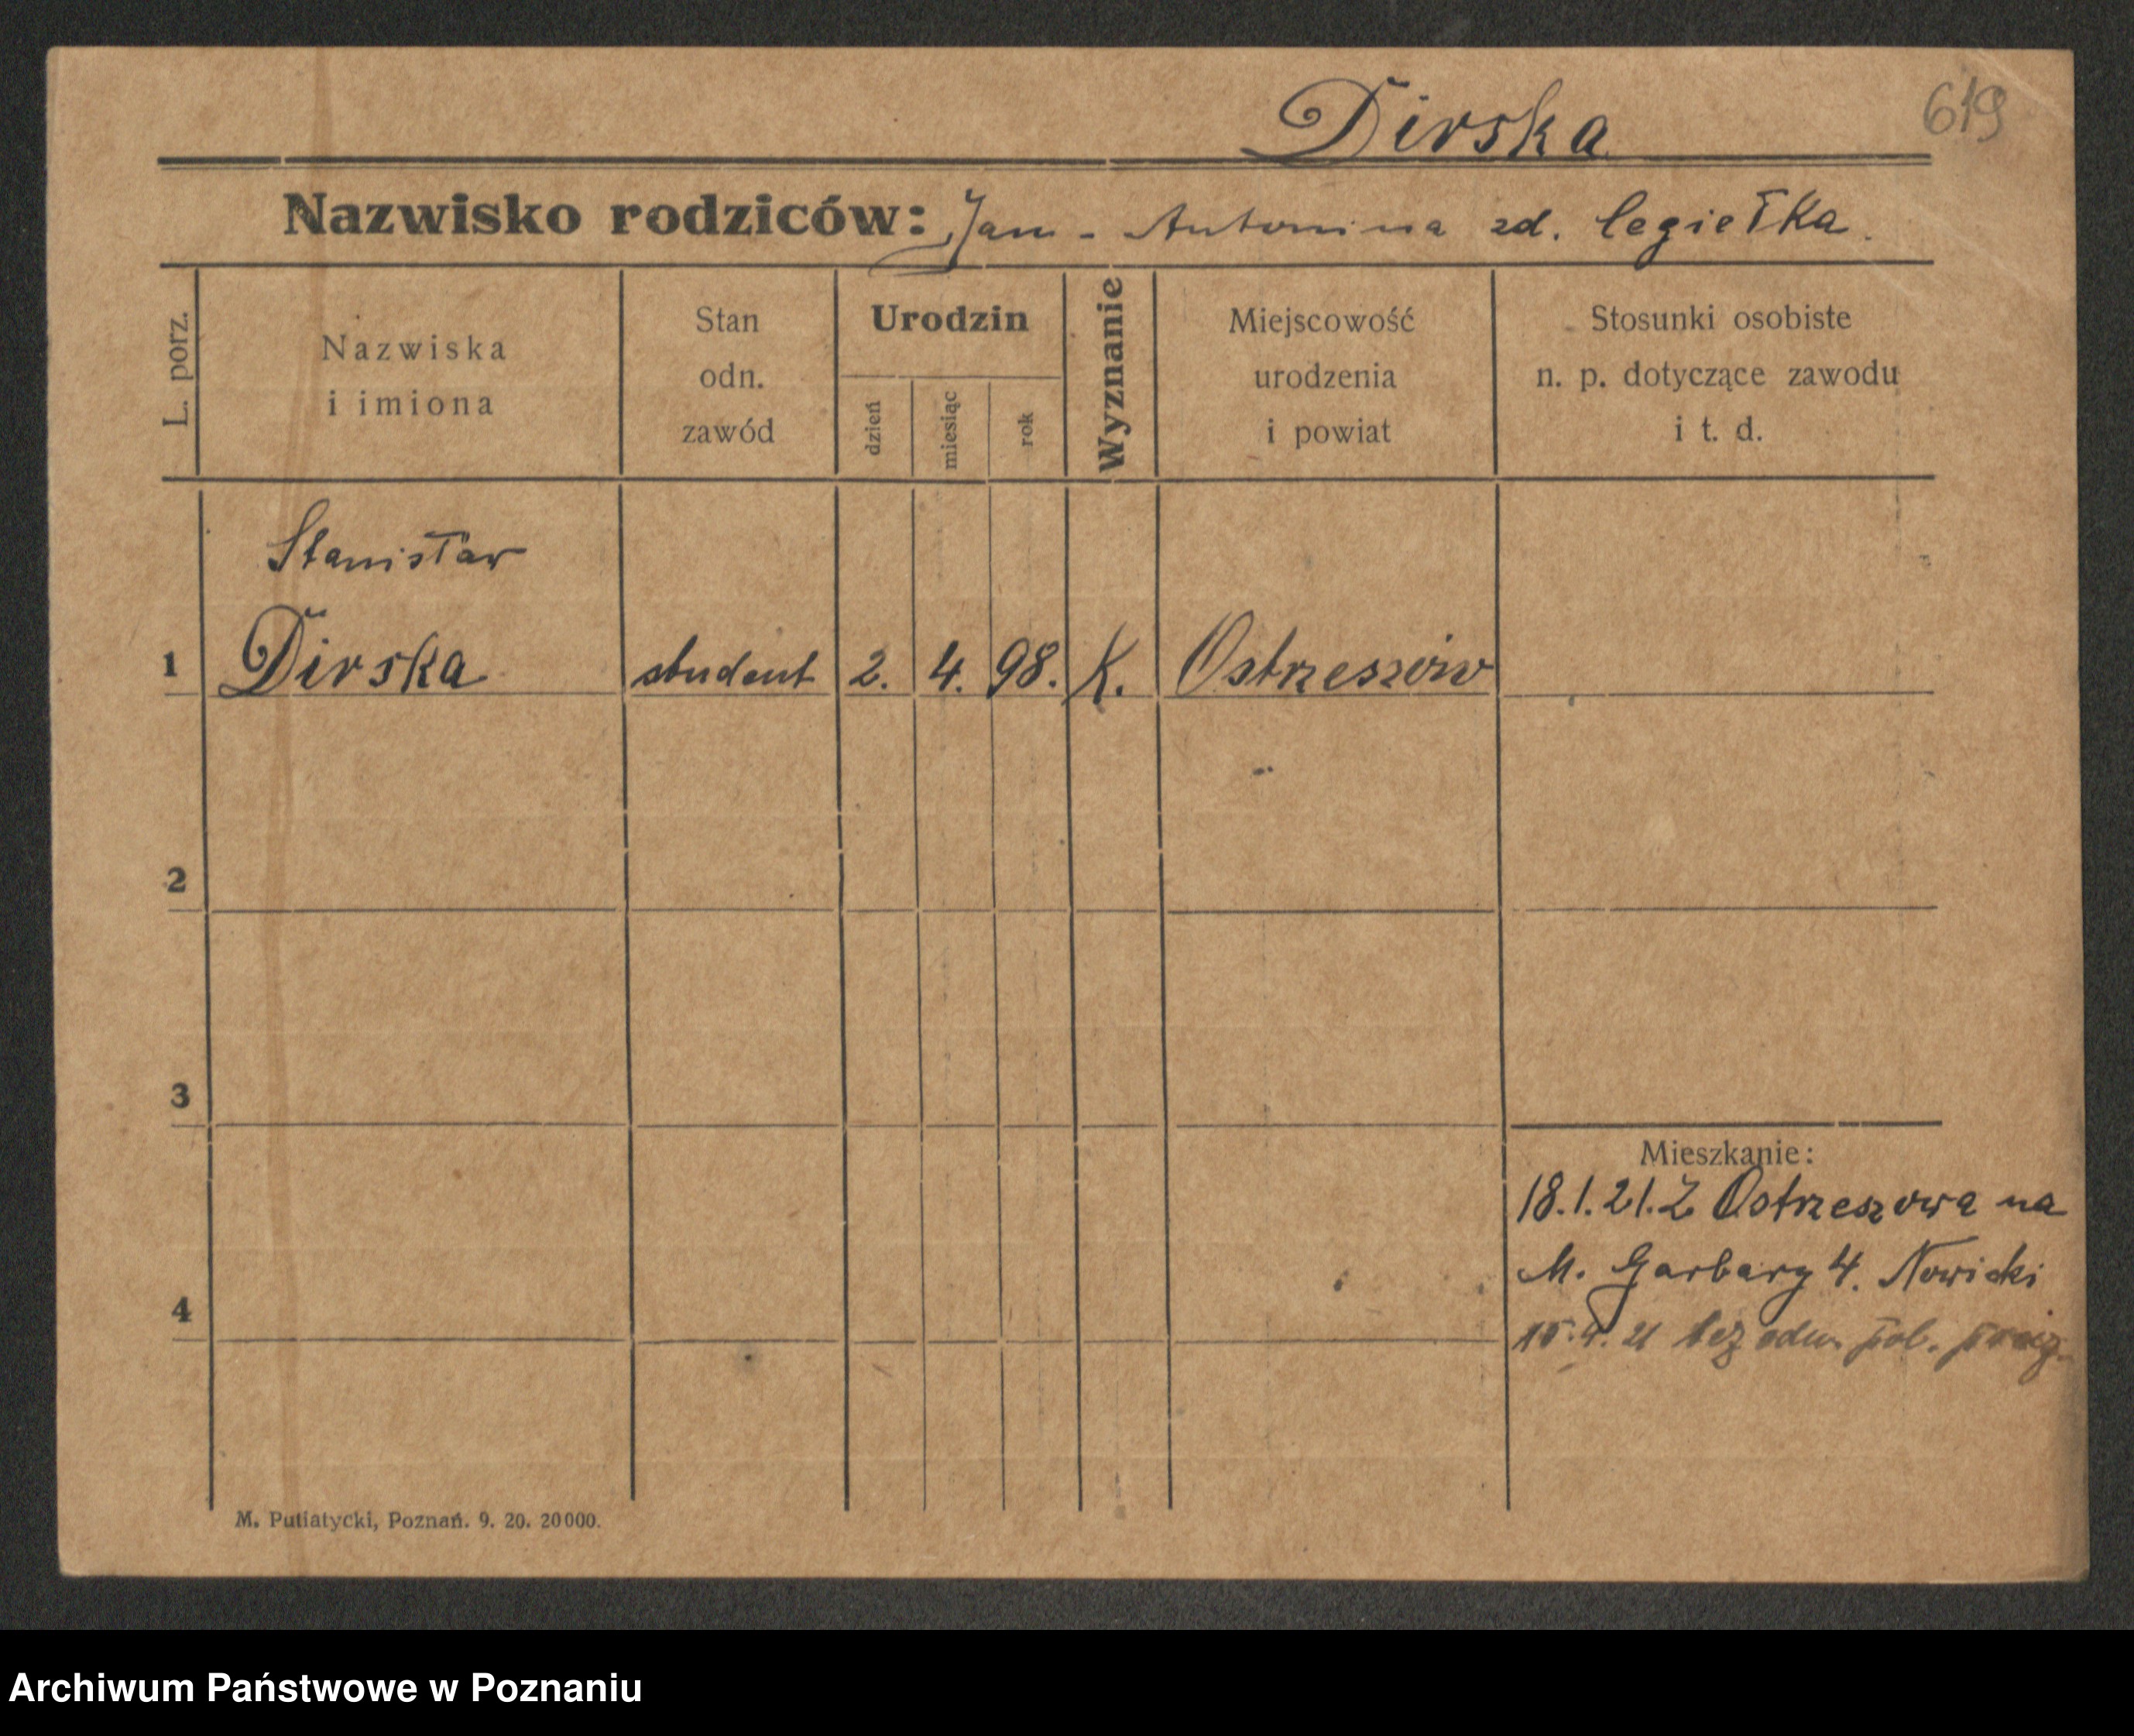 Dirska
619
Nazwisko rodziców: Jan - Antonina zd. Cegiełka.
L. porz.
Nazwiska
i imiona
Stan
odn.
zawód
Urodzin
dzień
miesiąc
rok
Wyznanie
Miejscowość
urodzenia
i powiat
Stosunki osobiste
n. p. dotyczące zawodu
i t. d.
Stanisław
1 Dirska student 2. 4. 98. K. Ostrzeszów
2
3
Mieszkanie:
18.1.21. Z Ostrzeszowa na
M. Garbary 4. Nowicki
4
15.4.21 bez odm. pol.
M. Putiatycki, Poznań. 9. 20. 20000.
Archiwum Państwowe w Poznaniu